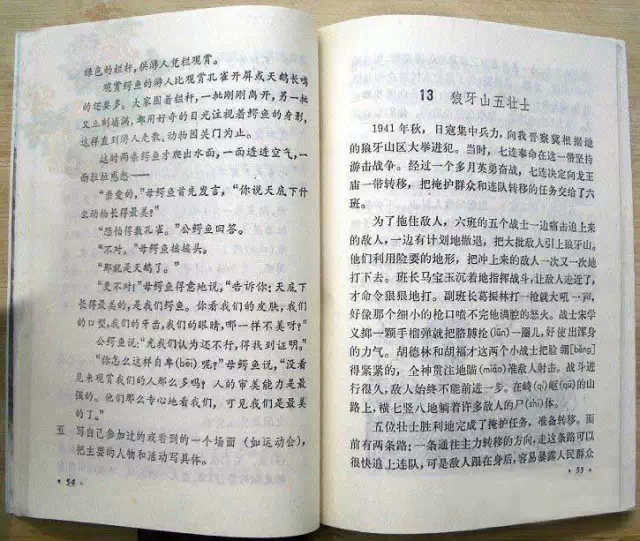 绿色的栏杆，供游人凭栏观赏。
观赏鳄鱼的游人比观赏孔雀开屏或天鹅长鸣
的还要多。大家围着栏杆，一批刚刚离开，另一批
又立刻填满，都用好奇的目光注视着鳄鱼的身影，
这样直到游人走散、动物园关门为止。
这时两条鳄鱼才爬出水面，一面透透空气，一
面拉拉感想——
“亲爱的，”母鳄鱼首先发言，“你说天底下什
么动物长得最美？”
“恐怕得数孔雀。”公鳄鱼回答。
“不对。”母鳄鱼摇摇头。
“那就是天鹅了。”
“更不对！”母鳄鱼得意地说，“告诉你：天底下
长得最美的，是我们鳄鱼。你看我们的皮肤，我们
的口型，我们的牙齿，我们的眼睛，哪一样不美呀？”
公鳄鱼说：“光我们认为还不行，得找到证明。”
“你怎么这样自卑(bēi)呢？”母鳄鱼说，“没看
见来观赏我们的人那么多吗？人的审美能力是最
强的。他们那么专心地看我们，可见我们是最美
的了。”
五 写自己参加过的或看到的一个场面（如运动会），
把主要的人物和活动写具体。
·54·
13 狼牙山五壮士
1941年秋，日寇集中兵力，向我晋察冀根据地
的狼牙山区大举进犯。当时，七连奉命在这一带坚持
游击战争。经过一个多月英勇奋战，七连决定向龙王
庙一带转移，把掩护群众和连队转移的任务交给了六
班。
为了拖住敌人，六班的五个战士一边痛击追上来
的敌人，一边有计划地撤退，把大批敌人引上狼牙山。
他们利用险要的地形，把冲上来的敌人一次又一次地
打下去。班长马宝玉沉着地指挥战斗，让敌人走近了，
才命令狠狠地打。副班长葛振林打一枪就大吼一声，
好像那个细小的枪口喷不完他满腔的怒火。战士宋学
义掷一颗手榴弹就把胳膊抡(lūn)一圈儿，好使出浑身
的力气。胡德林和胡福才这两个小战士把脸绷[běng]
得紧紧的，全神贯注地瞄(miáo)准敌人射击。战斗进
行很久，敌人始终不能前进一步。在崎(qí)岖(qū)的山
路上，横七竖八地躺着许多敌人的尸(shī)体。
五位壮士胜利地完成了掩护任务，准备转移。面
前有两条路：一条通往主力转移的方向，走这条路可以
很快追上连队，可是敌人跟在身后，容易暴露人民群众
·55·